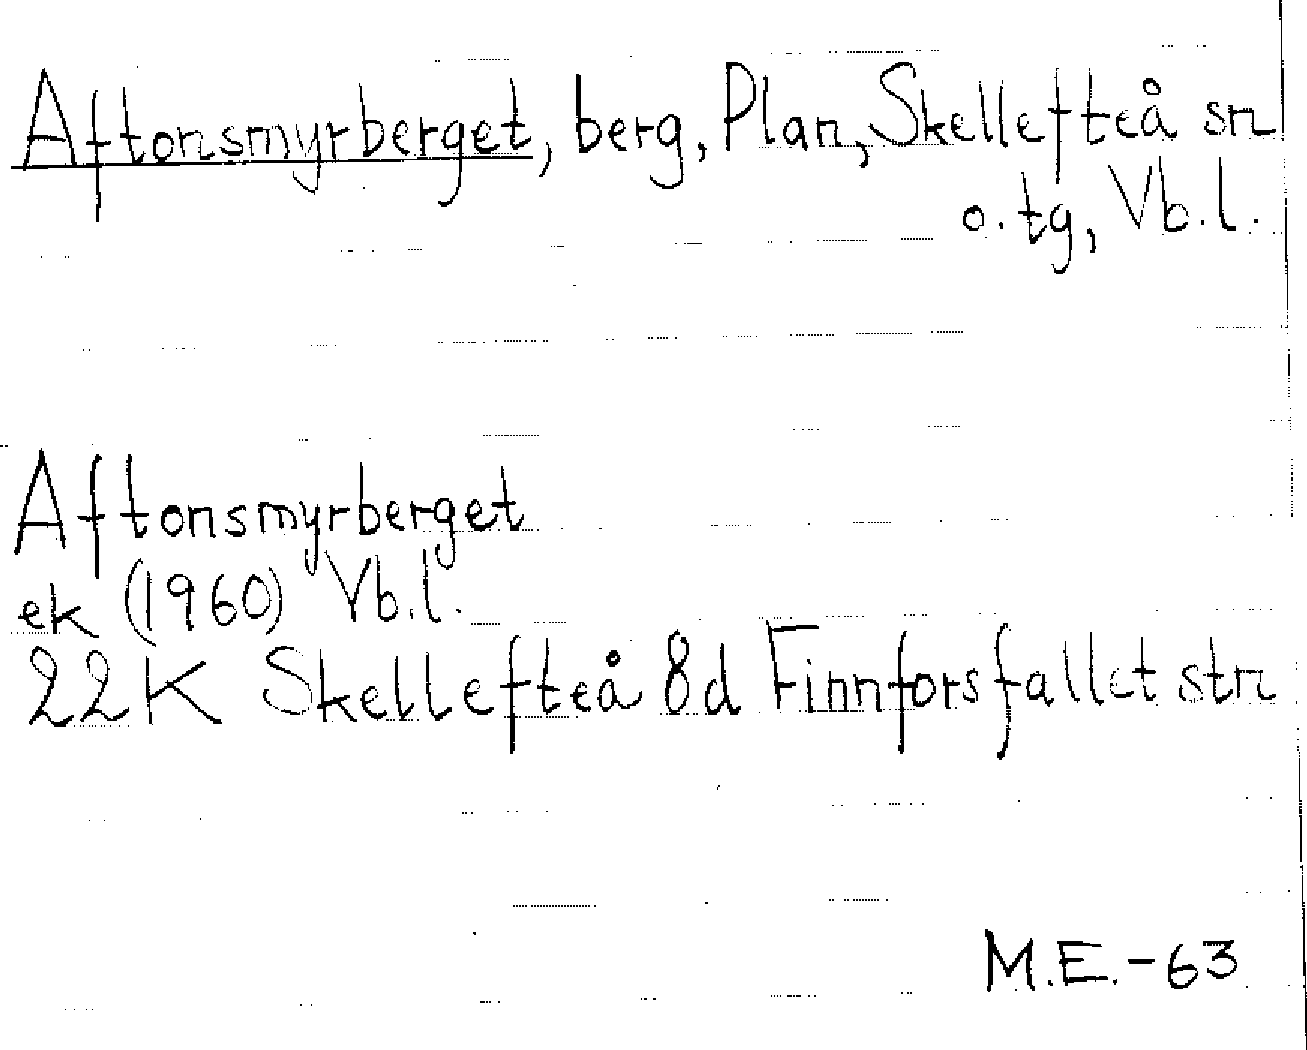 Aftonsmyrberget, berg, Plan, Skellefteå sn
o. tg, Vb. l.
Aftonsmyrberget
ek (1960) Vb. l.
22K Skellefteå 8d Finnforsfallet str
M.E.-63